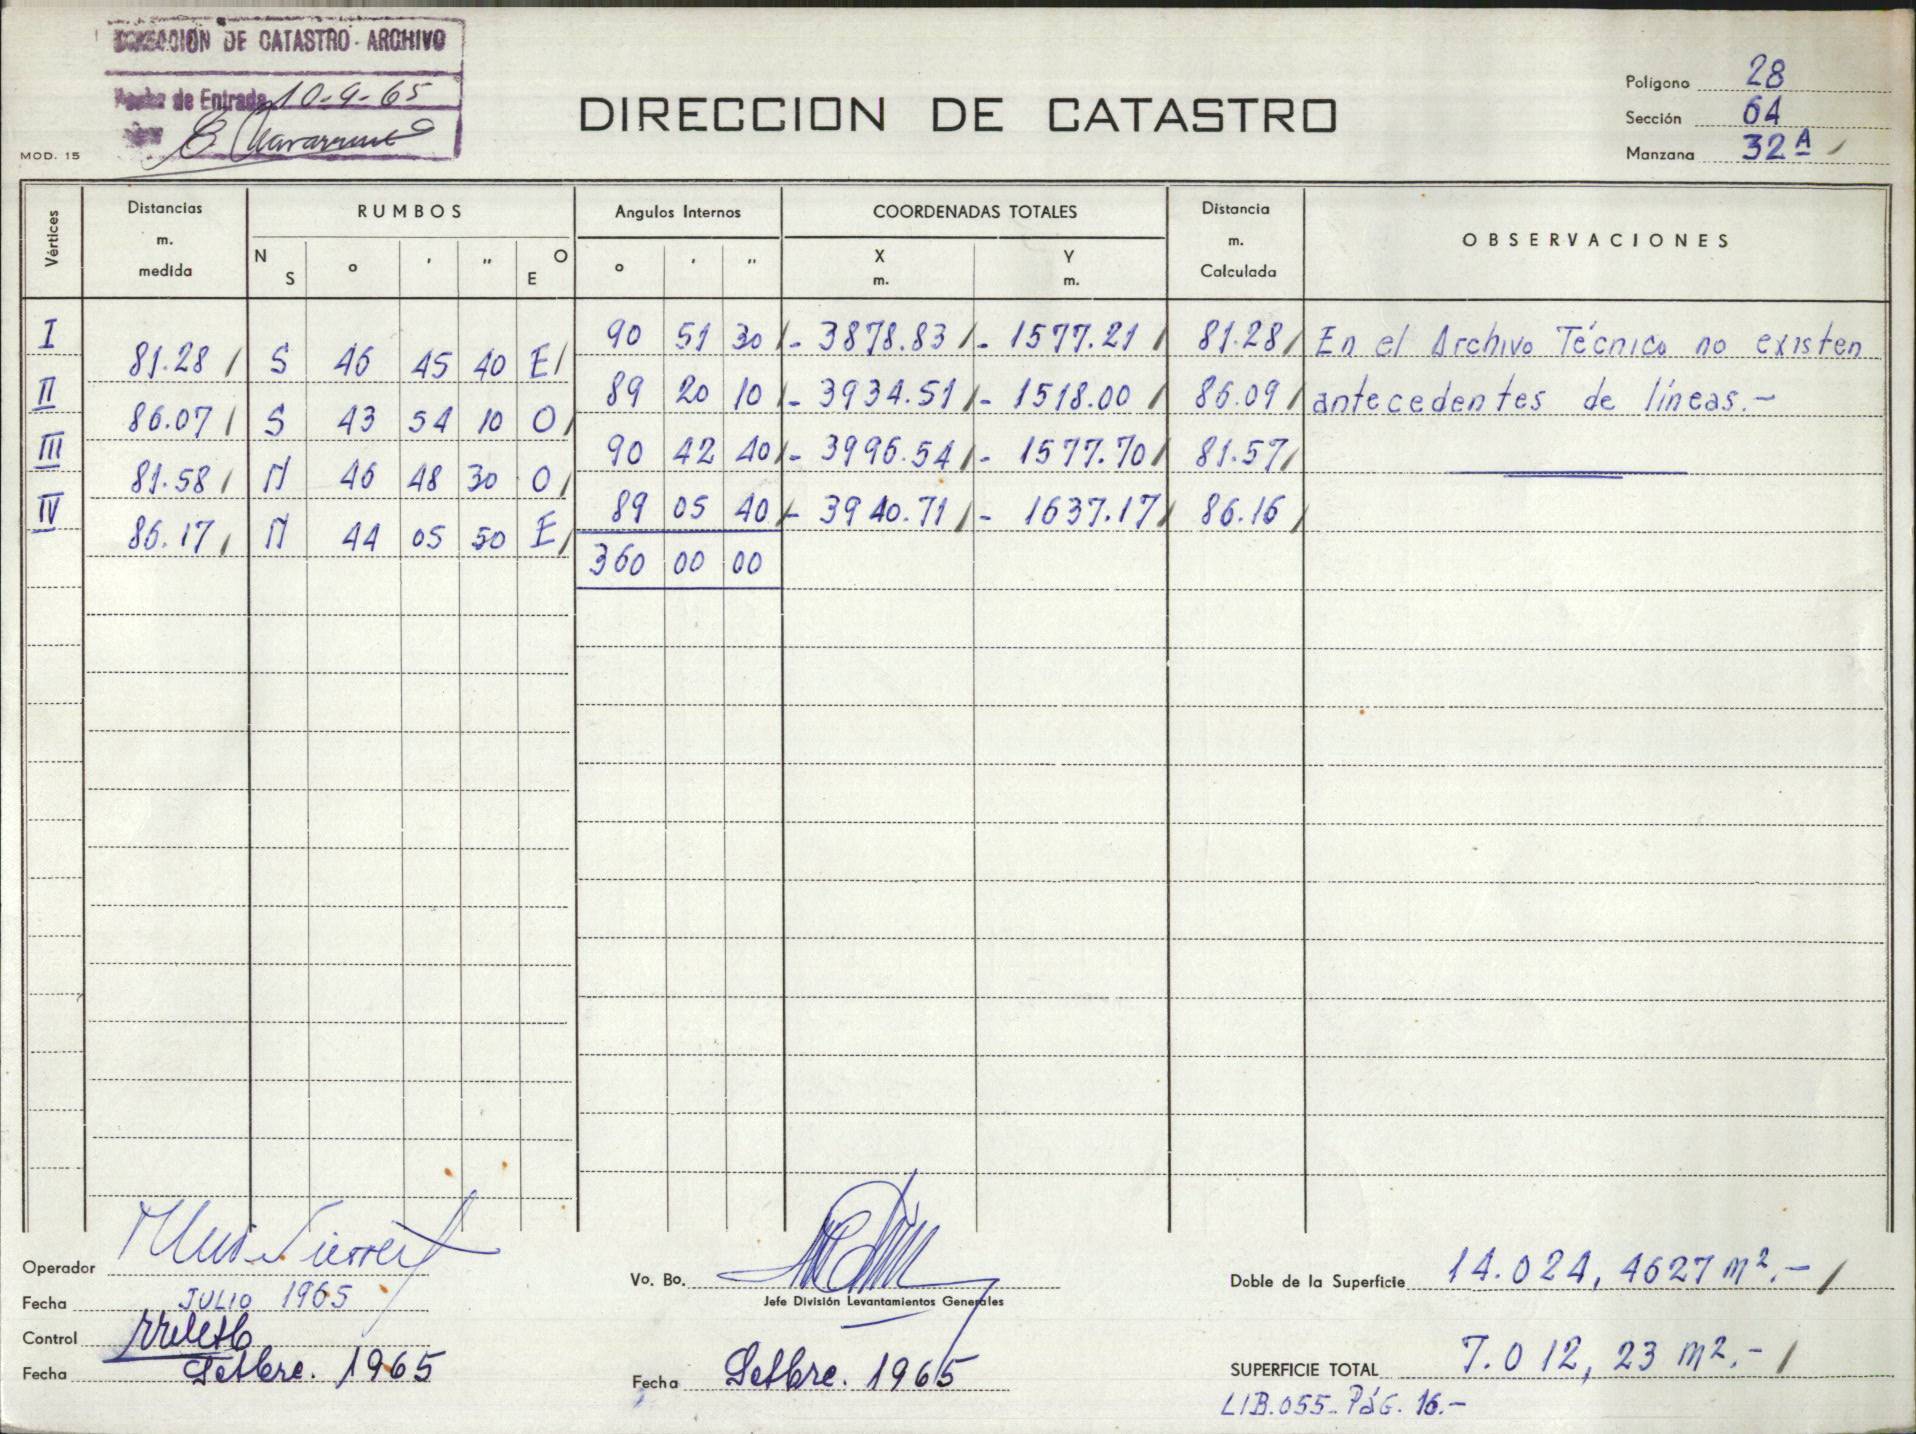 DIRECCION DE CATASTRO - ARCHIVO
Fecha de Entrada 10-9-65
DIRECCION DE CATASTRO
Polígono 28
Sección 64
Manzana 32 A
MOD. 15
Vértices
Distancias m. medida
RUMBOS
N S ° ' " O E
Angulos Internos
° ' "
COORDENADAS TOTALES
X m. Y m.
Distancia m. Calculada
OBSERVACIONES
I 90 51 30 - 3878.83 - 1577.21 81.28 En el Archivo Técnico no existen
81.28 S 46 45 40 E
II 89 20 10 - 3934.51 - 1518.00 86.09 antecedentes de líneas.-
86.07 S 43 54 10 O
III 90 42 40 - 3996.54 - 1577.70 81.57
81.58 N 46 48 30 O
IV 89 05 40 - 3940.71 - 1637.17 86.16
86.17 N 44 05 50 E
360 00 00
Operador
Fecha JULIO 1965
Control
Fecha Setbre. 1965
Vo. Bo.
Jefe División Levantamientos Generales
Fecha Setbre. 1965
Doble de la Superficie 14.024,4627 m².-
SUPERFICIE TOTAL 7.012,23 m².-
LIB.055-PÁG. 16.-